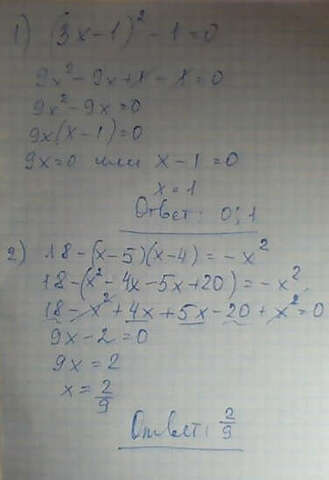 1) (3x-1)² - 1 = 0
9x² - 9x + 1 - 1 = 0
9x² - 9x = 0
9x(x-1) = 0
9x = 0 или x - 1 = 0
x = 1
Ответ: 0; 1
2) 18 - (x-5)(x-4) = -x²
18 - (x² - 4x - 5x + 20) = -x²
18 - x² + 4x + 5x - 20 + x² = 0
9x - 2 = 0
9x = 2
x = 2/9
Ответ: 2/9